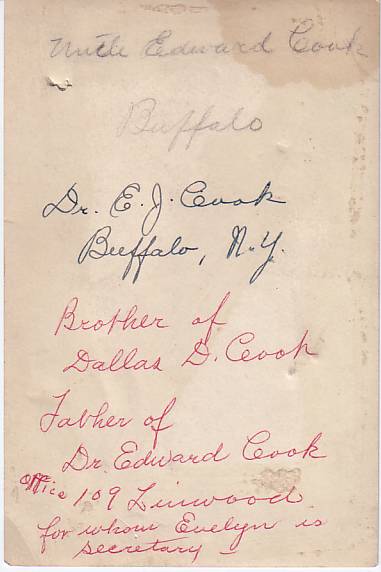 Uncle Edward Cook
Buffalo
Dr. E. J. Cook
Buffalo, N.Y.
Brother of
Dallas D. Cook
Father of
Dr. Edward Cook
Office 109 Linwood
for whom Evelyn is
secretary —